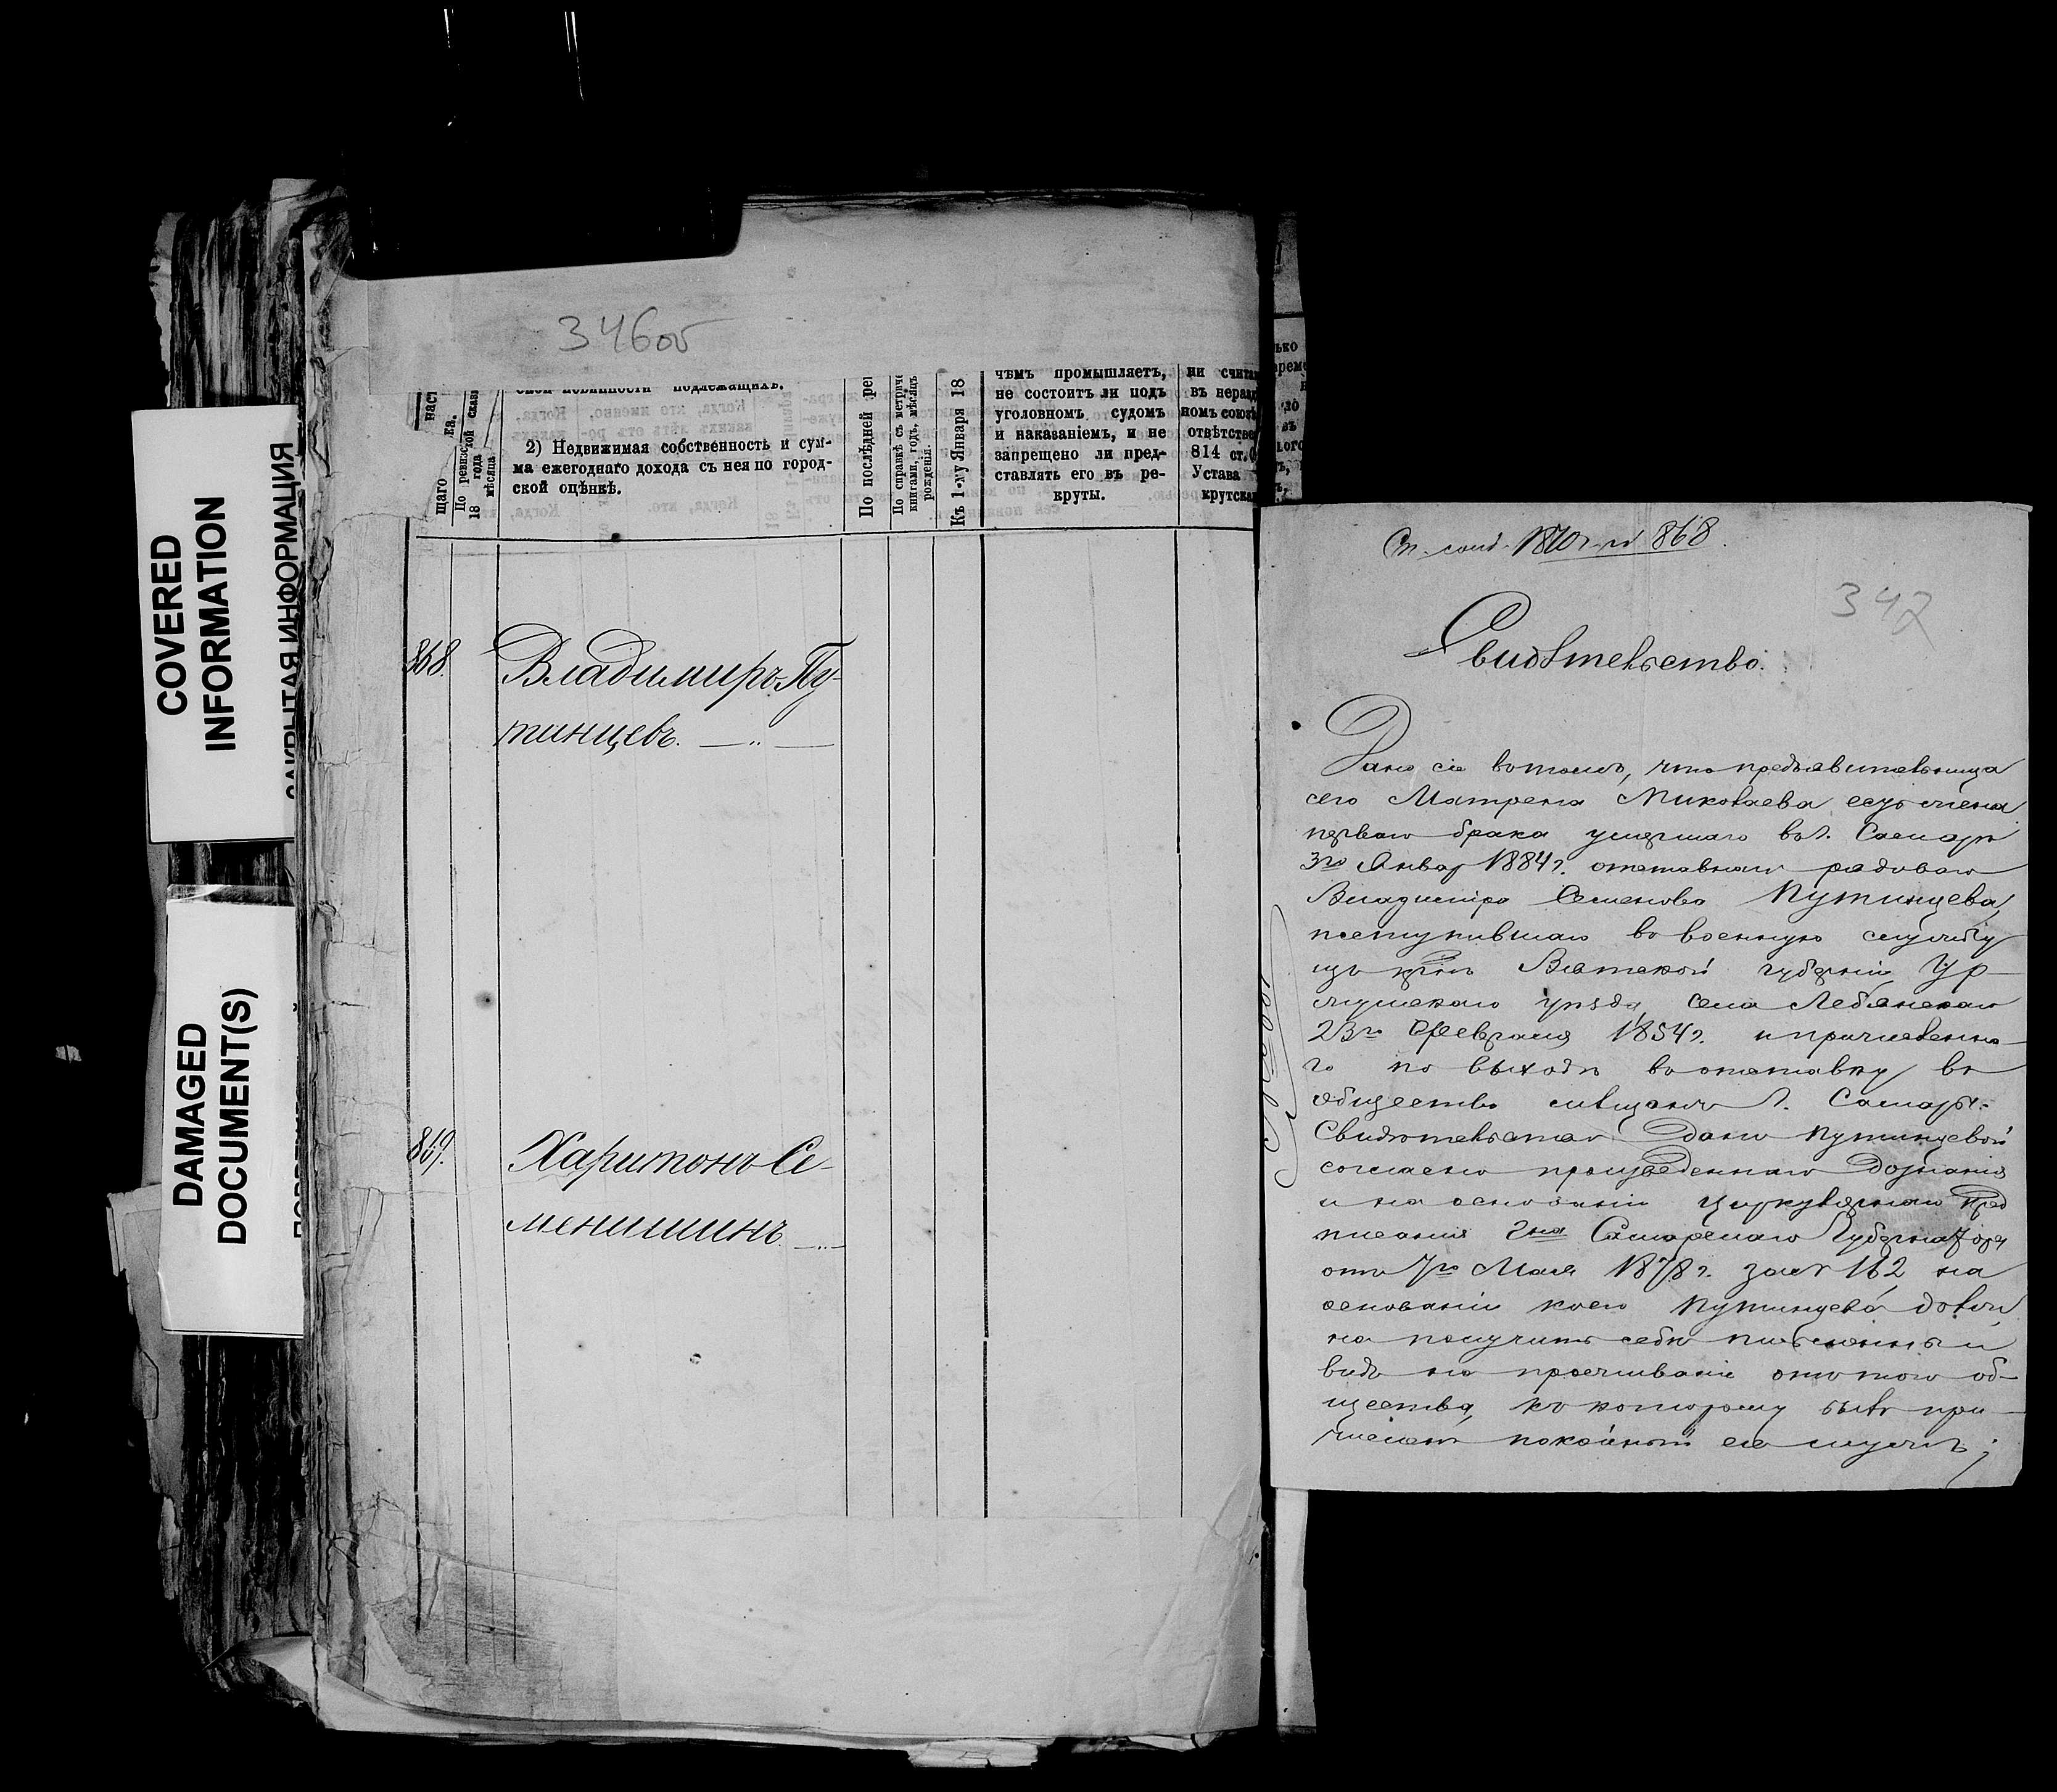 COVERED
INFORMATION
ЗАКРЫТАЯ ИНФОРМАЦИЯ
DAMAGED
DOCUMENT(S)
346об
щаго
По ревизской сказ
18 года мѣсяца
подлежащихъ.
2) Недвижимая собственность и сум-
ма ежегоднаго дохода съ нея по город-
ской оцѣнкѣ.
По послѣдней
По справкѣ съ метриче
книгами, годъ, мѣсяцъ
рожденія.
Къ 1-му Января 18
чѣмъ промышляетъ,
не состоитъ ли подъ
уголовномъ судомъ
и наказаніемъ, и не
запрещено ли пред-
ставлять его въ ре-
круты.
ни счита
въ нераз
номъ союз
отвѣтстве
814 ст.
Устава
крутска
868.
Владимиръ Пу-
тинцевъ.
869.
Харитонъ Се-
менишинъ
1870 г. № 868.
347
Свидѣтельство.
Дано сіе въ томъ, что предъявительница
сего Матрена Николаева есть жена
перваго брака умершаго въ г. Самарѣ
3го Январ 1884 г. отставнаго рядоваго
Владиміра Семенова Путинцева,
поступившаго въ военную службу
изъ Вятской губерніи Ур-
жумскаго уѣзда, села Лебяжскаго
23го Февраля 1854 г. и причисленна-
го по выходѣ въ отставку въ
общество мѣщанъ г. Самары.
Свидѣтельство дано Путинцевой
согласно произведеннаго дознанія
и на основаніи циркулярнаго пред
писанія Гна Самарскаго Губернатора
отъ 7го Мая 1878 г. за № 162 на
основаніи коего Путинцева долж
на получить себѣ письменный
видъ на проживаніе отъ того об-
щества, къ которому былъ при-
численъ покойный ея мужъ;